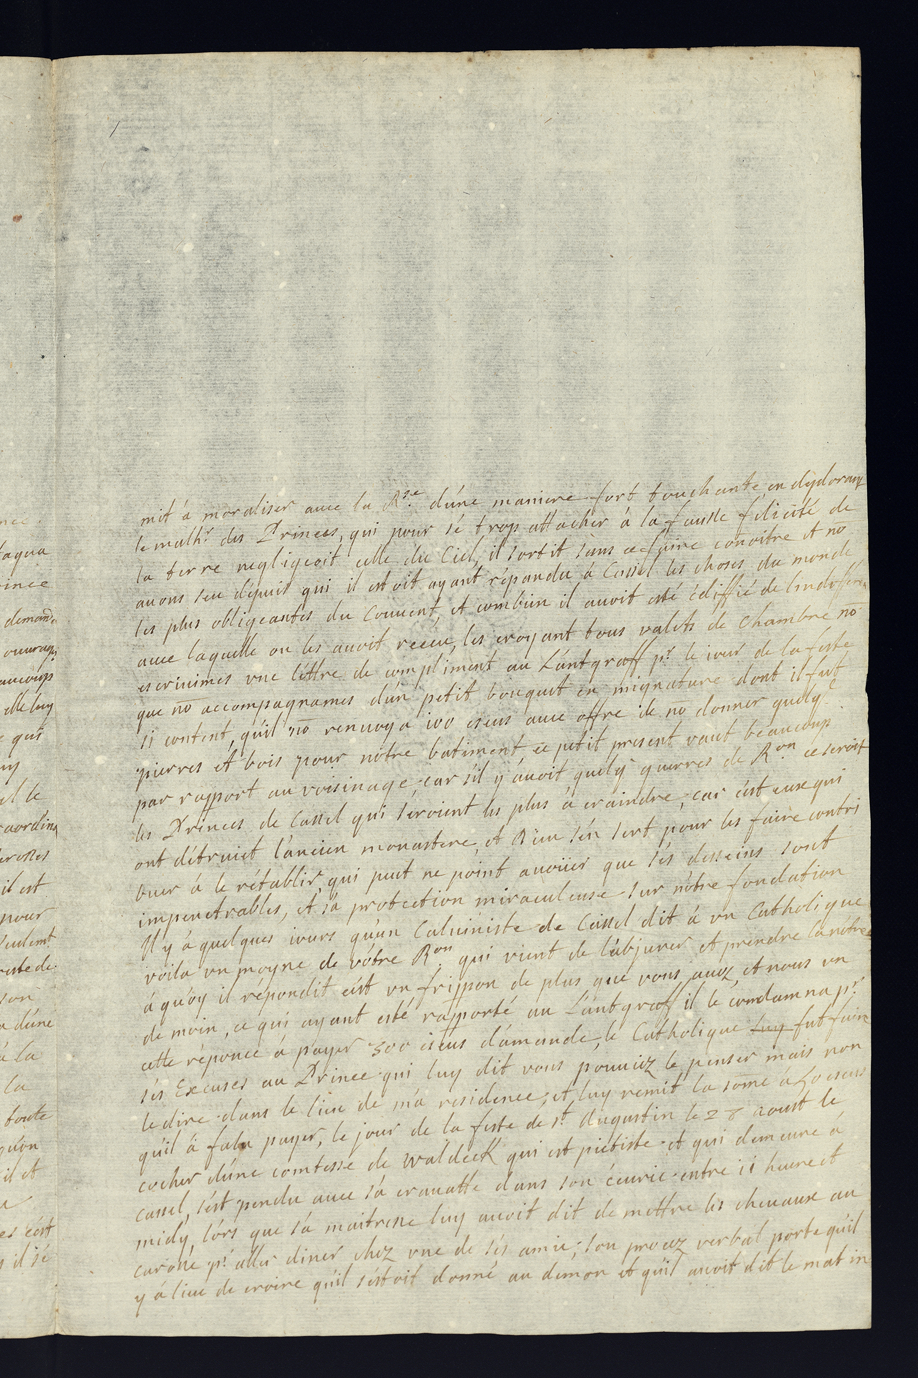 mit à moraliser auec la R.se d'úne maniere fort touchante en déplorant
le malh.r des Princes, qui pour sé trop attacher à la fausse félicité de
la terre negligeoit celle du Ciel, il sortit sans ce faire conoitre et no
auons seu dépuis qui il estoit ayant répandu à Cassel les choses du monde
les plus obligeantes du Couuent, et combien il auoit esté édiffié de
auec laquelle on les auoit receu, les croyant tous valets de Chambre no
escriuimes vne léttre de compliment au Lántgraff p.r le iour de la feste
que no accompagnames d'un petit bouquet en mignature dont il fut
si content qu'il no renuoya 100 escus auec offre de no donner quelq.e
pierres et bois pour nótre batiment ce petit present vaut beaucoup
par rapport au voisinage, car s'il y auoit quelq guerres de R.on ce seroit
les Princes de Cassel qui séroient les plus à craindre, car c'est eux qui
ont détruict l'ancien monastere, et Dieu s'én sert pour les faire contri
buer à le rétablir, qui peut ne point auoüer que sés desseins sont
impenetrables, et sa protection miraculeuse sur nótre fondation
Il y à quelques iours qu'un Caluiniste de Cassel dit à vn Catholique
voila vn moyne de vótre R.on qui vient de l'abjurer et prendre la nótre
à quóy il répondit cest vn frippon de plus que vous auez et nous vn
de moin, ce qui ayant esté rapporté au Lántgraff il le condamna p.r
cette réponce à payer 300 escus d'amande, le Catholique luy fut faire
sés Excuses au Prince qui luy dit vous pouuiez le penser mais non
le dire dans le lieu de ma residence, et luy remit la some à 50 escus
qu'il à falu payer, le jour de la feste de s.t Augustin le 28 aoust le
cocher d'úne comtesse de waldeck qui est piétiste et qui demeure à
cassel, s'ést pendu auec sa crauatte dans son écurie entre 11 heure et
midy, lors que sa maitresse luy auoit dit de mettre les cheuaux au
carosse p.r aller diner chez vne de sés amie; son procez verbal porte qu'il
y à lieu de croire qu'il s'éstoit donné au demon et qu'il auoit dit le matin